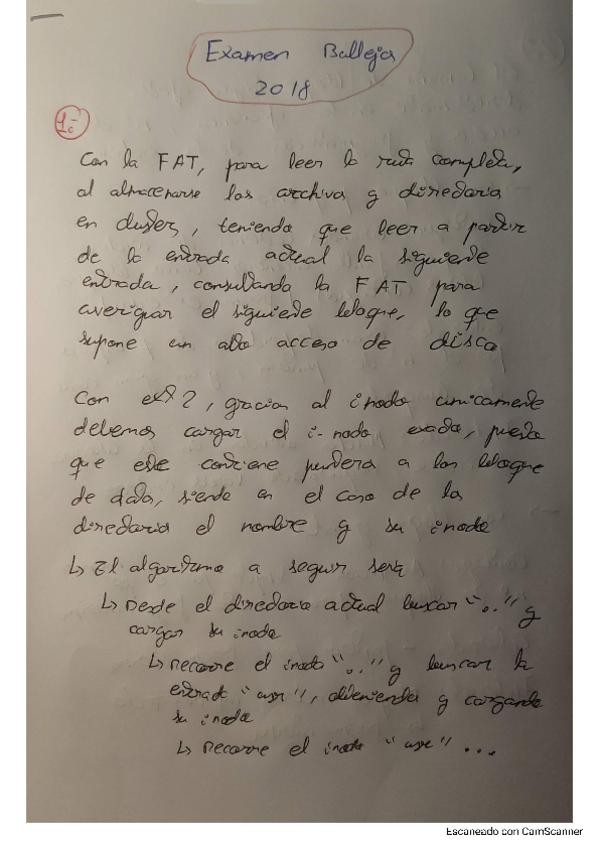 Examen Balleja
2018
1º-
Con la FAT, para leer la ruta completa,
al almacenarse los archivos y directorios
en clusters, teniendo que leer a partir
de la entrada actual la siguiente
entrada, consultando la FAT para
averiguar el siguiente bloque, lo que
supone un alto acceso de disco
Con ext2, gracias al inodo unicamente
debemos cargar el i-nodo exacto, puesto
que este contiene punteros a los bloque
de datos, siendo en el caso de los
directorios el nombre y su inodo
↳ El algoritmo a seguir será
↳ Desde el directorio actual buscar ".." y
cargar su inodo
↳ Recorre el inodo ".." y buscar la
entrada "usr", obteniendo y cargando
su inodo
↳ Recorre el inodo "usr" ...
Escaneado con CamScanner